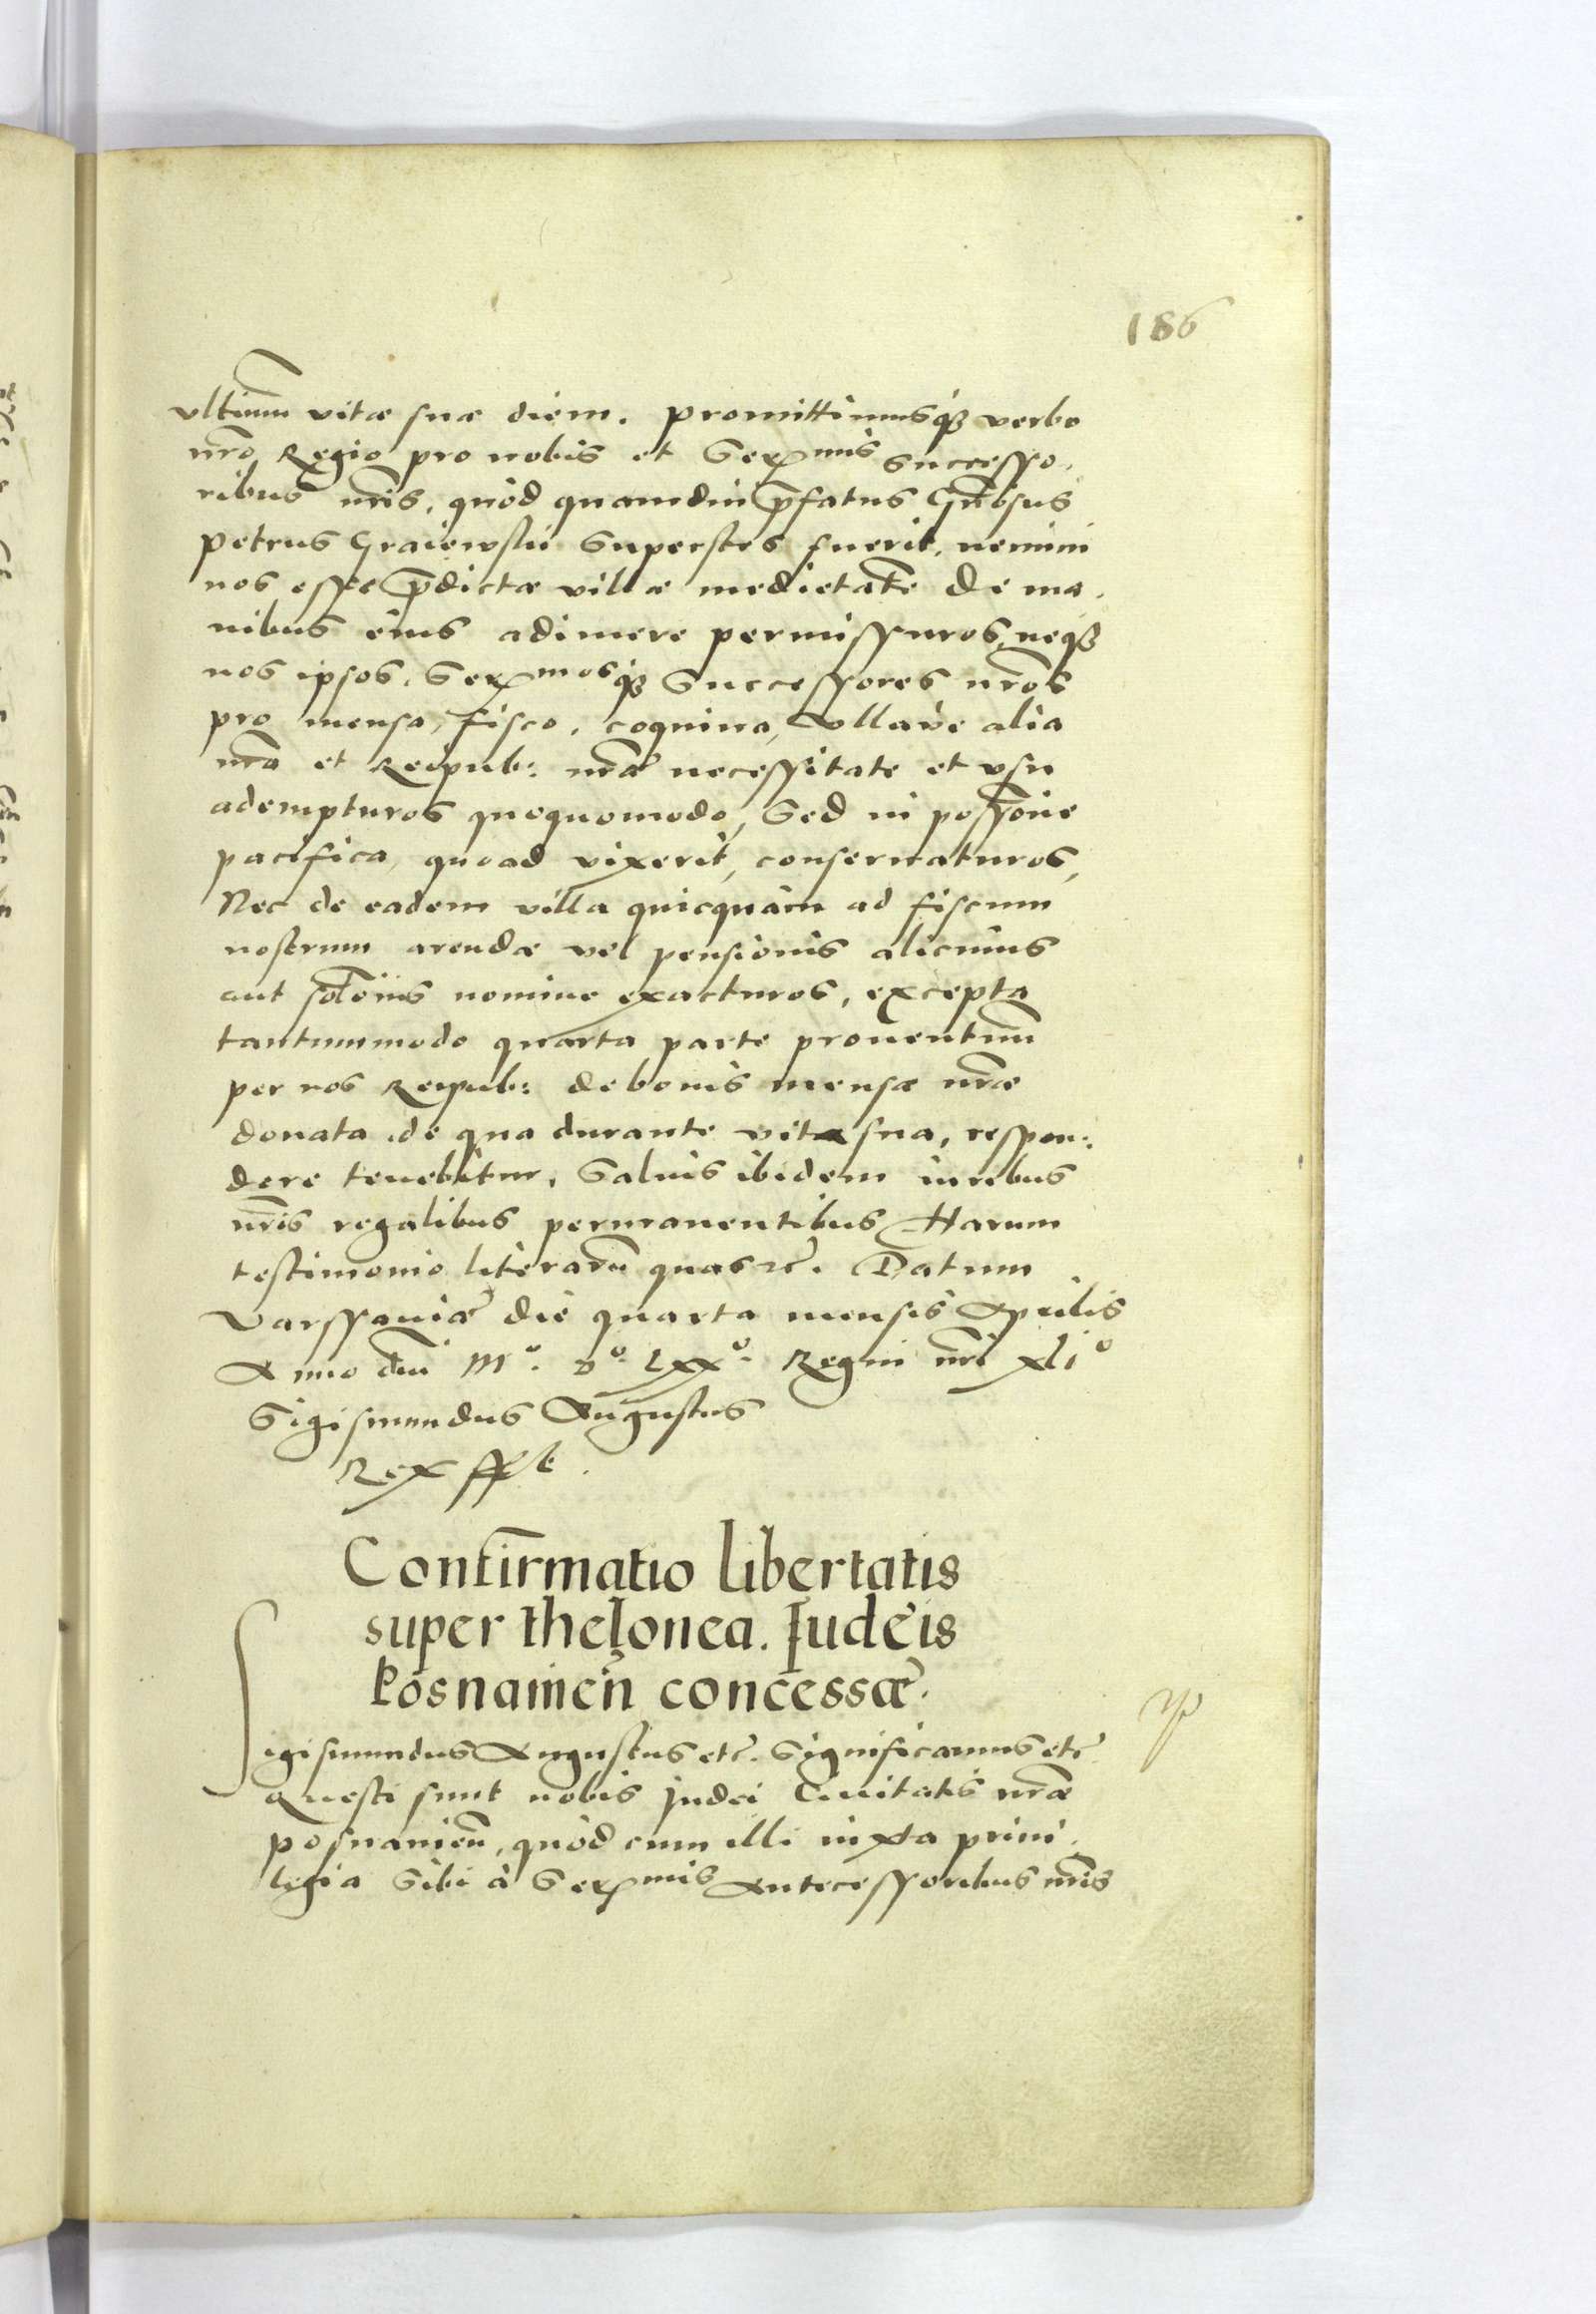 186
vltimũ vitæ suæ diem. promittimusq₃ verbo
nr̃o Regio pro nobis et Ser^mis successo,
ribus nr̃is, quòd quamdiu p̃fatus Gnõsus
Petrus Graiewskii superstes fuerit, nemini
nos esse p̃dictæ villæ medietatẽ de ma,
nibus eius adimere permissuros, neq₃
nos ipsos, Ser^mosq₃ Successores nr̃os
pro mensa, fisco, coquina, vllave alia
nr̃a et Reipub: nr̃æ necessitate et vsu
adempturos quoquomodo, Sed in possõne
pacifica, quoad vixerit, conseruaturos,
Nec de eadem villa quicquàm ad fiscum
nostrum arendæ vel pensionis alicuius
aut solõnis nomine exacturos, excepta
tantummodo quarta parte prouentuũ
per nos Reipub: de bonis mensæ nr̃æ
donata, de qua durante vita sua, respon:
dere tenebitur, Saluis ibidem iuribus
nr̃is regalibus permanentibus Harum
testimonio literarũ quas etc̃. Datum
Varssauiæ die quarta mensis Aprilis
Anno dñi M^o. D^o. Lxx^o. Regni nr̃i xli^o
Sigismundus Augustus
Rex sspt.
Confirmatio libertatis
super thelonea. Iudeis
Posnanieñ concessæ.
Sigismundus Augustus etc̃. Significamus etc̃
Questi sunt nobis Iudei Ciuitatis nr̃æ
Posnanieñ, quòd cum illi iuxta priui,
legia sibi à Ser^mis Antecessoribus nr̃is